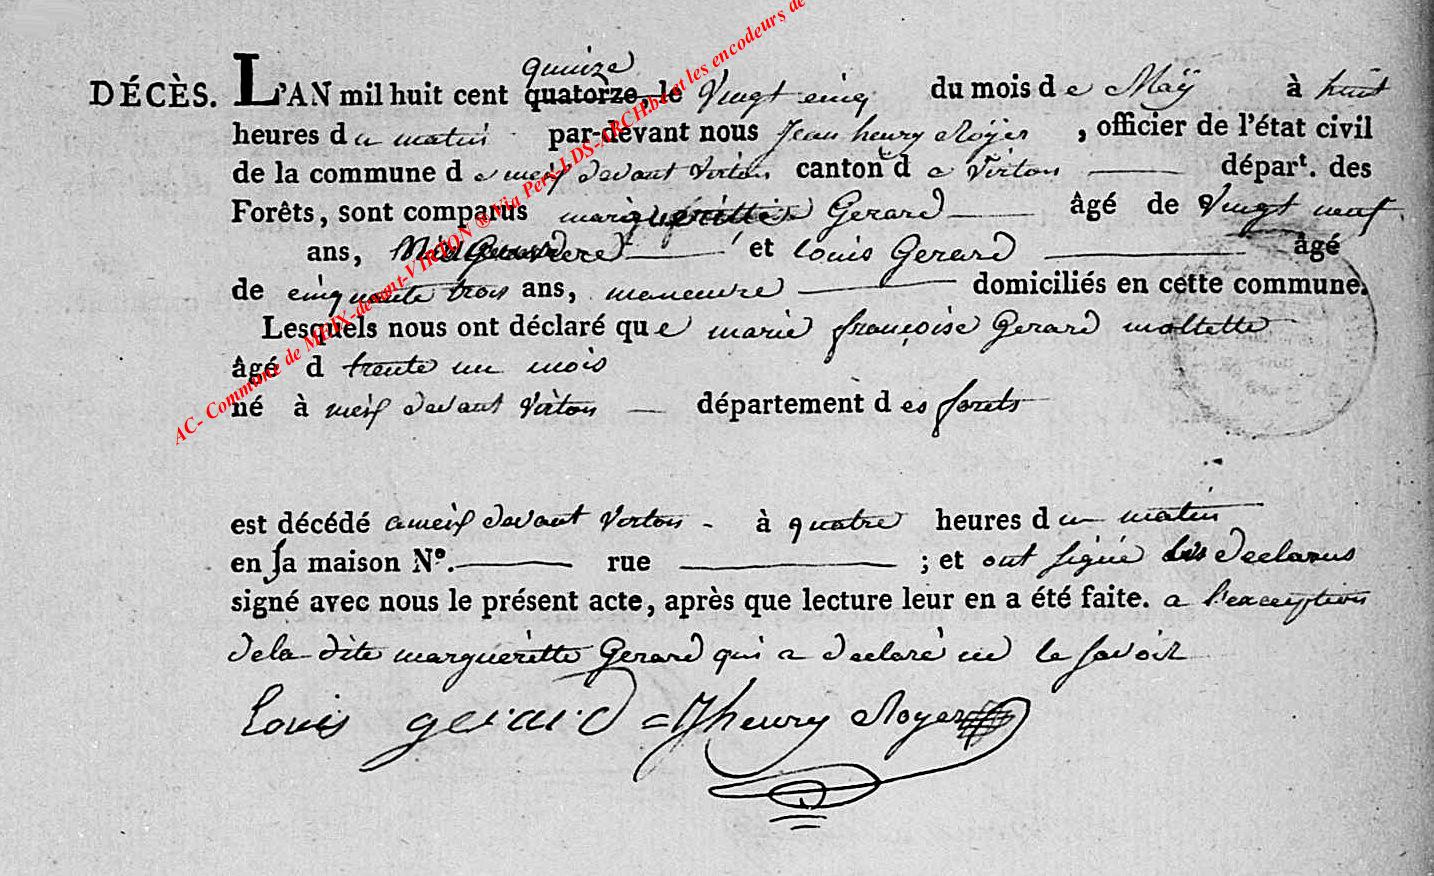 quinze
DÉCÈS. L'AN mil huit cent quatorze, le Vingt cinq du mois de Maÿ à huit
heures du matin par-devant nous Jean henry Royer, officier de l'état civil
de la commune de meix devant virton, canton de Virton départ. des
Forêts, sont comparus Gerard âgé de Vingt neuf
ans, et Louis Gerard âgé
de cinquante trois ans, maneuvre domiciliés en cette commune.
Lesquels nous ont déclaré que marie françoise Gerard
âgé d trente un mois
né à meix devant Virton département des forets
est décédé a meix devant Virton à quatre heures du matin
en sa maison N°. rue ; et ont signé les declarus
signé avec nous le présent acte, après que lecture leur en a été faite. a l'exception
de la dite margueritte Gerard qui a declaré ne le savoir
Louis gerard Jhenry Royer
AC- Commune de MEIX-devant-VIRTON ® Via Pers-LDS-ARCH.be et les encodeurs de